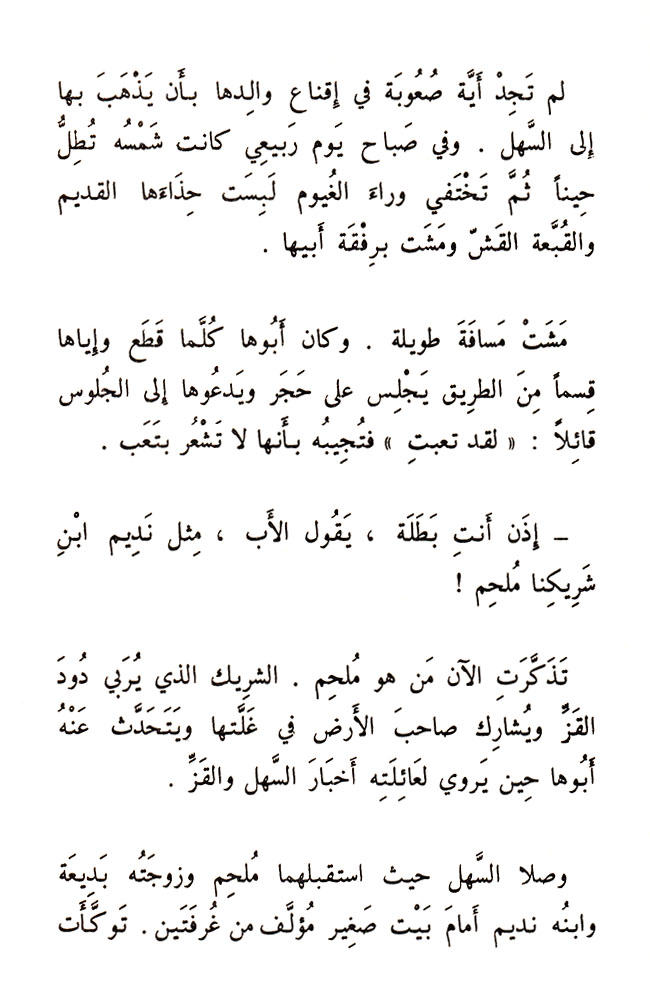 لم تَجِدْ أَيَّة صُعُوبَة في إِقناع والِدها بأَن يَذْهَبَ بها
إِلى السَّهل . وفي صَباح يَوم رَبيعِي كانت شَمْسُه تُطِلُّ
حِيناً ثُمَّ تَخْتَفي وراءَ الغُيوم لَبِسَت حِذَاءَها القديم
والقُبَّعة القَشّ ومَشَت بِرِفْقَة أَبيها .
مَشَتْ مَسافَةَ طويلة . وكان أَبُوها كُلَّما قَطَع وإِياها
قِسماً مِنَ الطرِيق يَجْلِس على حَجَر ويَدعُوها إِلى الجُلوس
قائِلاً : « لقد تعبتِ » فتُجِيبُه بأَنها لا تَشْعُر بتَعَب .
ــ إِذَن أَنتِ بَطَلَة ، يَقُول الأَب ، مِثل نَدِيم ابْنِ
شَرِيكِنا مُلحِم !
تَذَكَّرَتِ الآن مَن هو مُلحِم . الشرِيك الذي يُرَبي دُودَ
القَزِّ ويُشارِك صاحبَ الأَرض في غَلَّتها ويَتَحَدَّث عَنْهُ
أَبُوها حِين يَروي لعَائِلَتِه أَخبَارَ السَّهل والقَزِّ .
وصلا السَّهل حيث استقبلهما مُلحِم وزوجَتُه بَدِيعَة
وابنُه نديم أَمامَ بَيْت صَغِير مُؤلَّف من غُرفَتَين . تَوكَّأَت